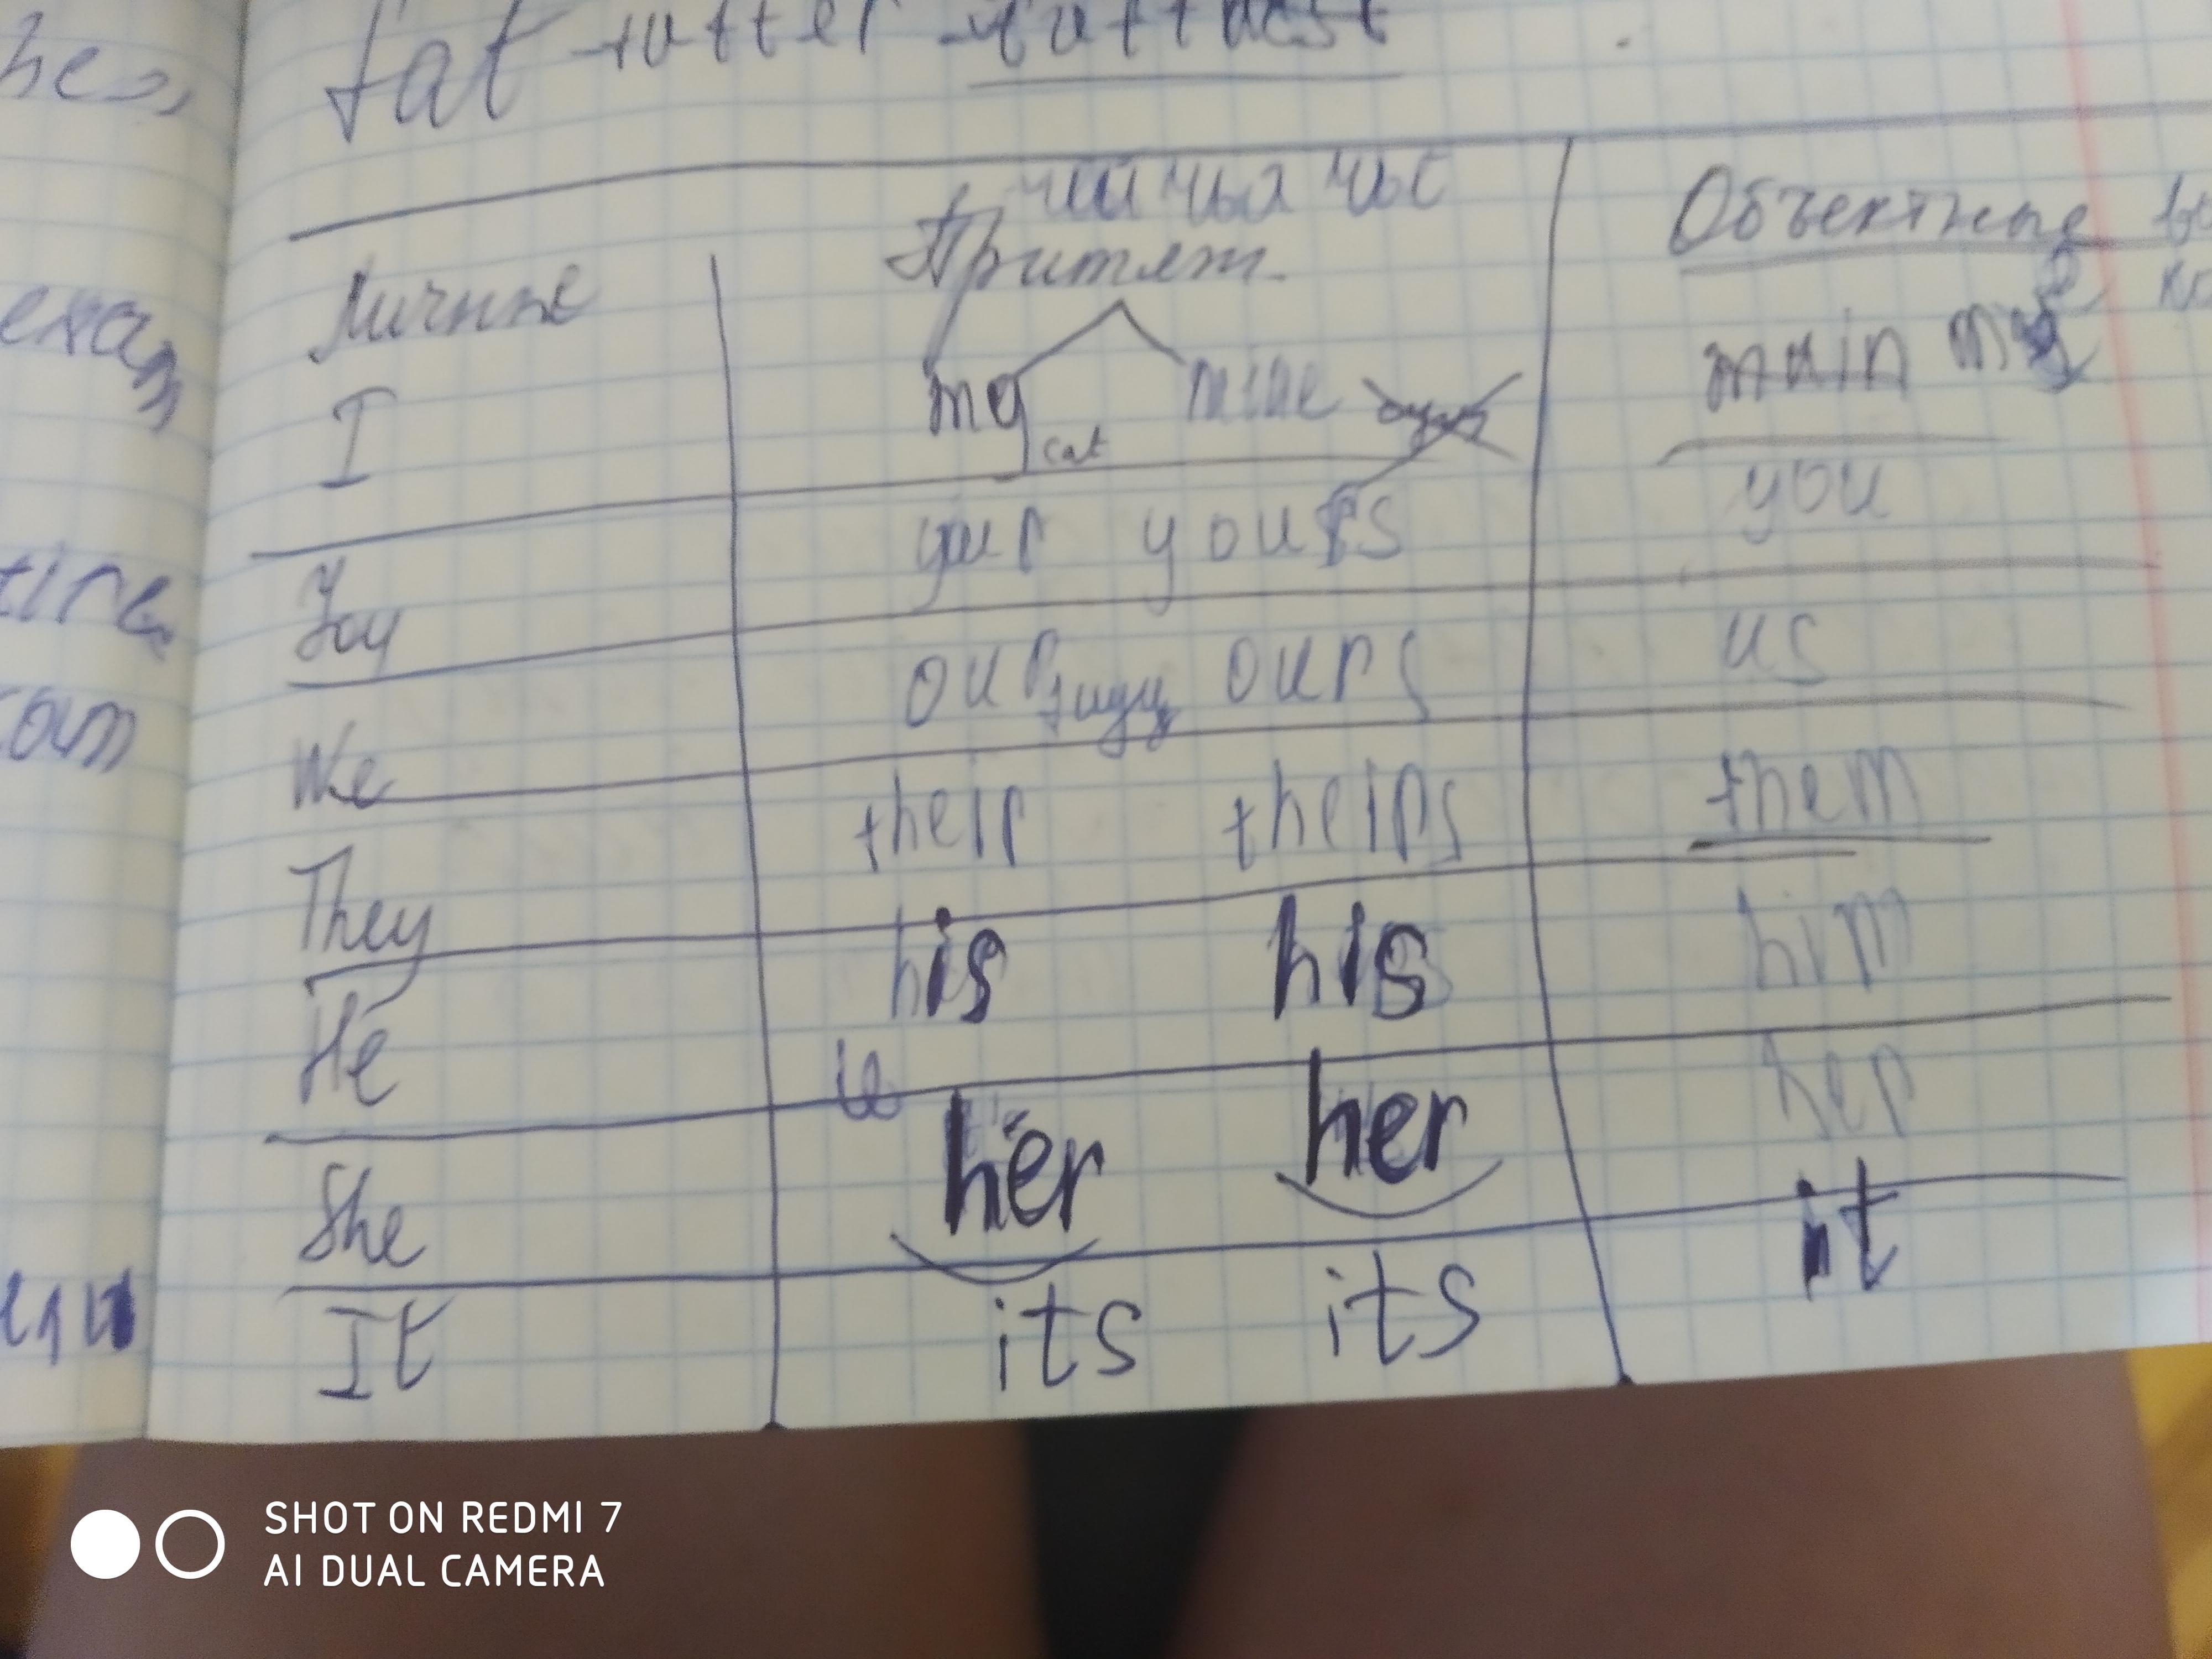 hes,
fat fatter fattest
чей чья чьё
Личные Притяж. Объектные
exam
I my cat mine me
your yours you
tire
You
our ours us
com
We
their theirs them
They
his his him
He
her her her
She
it
its its
It
SHOT ON REDMI 7
AI DUAL CAMERA